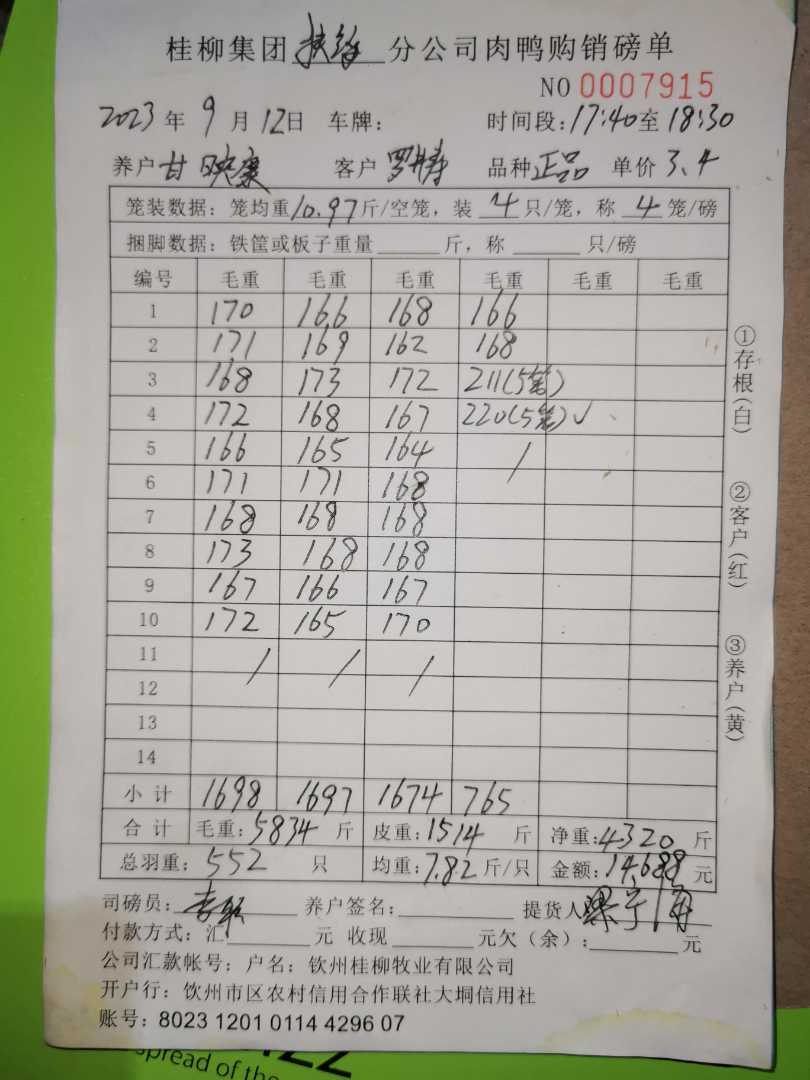 桂柳集团 扶绥 分公司肉鸭购销磅单
NO 0007915
2023年 9月 12日 车牌: 时间段: 17:40至 18:30
养户 甘映康 客户 罗 品种 正品 单价 3.4
笼装数据: 笼均重10.97斤/空笼, 装 4 只/笼, 称 4 笼/磅
捆脚数据: 铁筐或板子重量 斤, 称 只/磅
编号 毛重 毛重 毛重 毛重 毛重 毛重
1 170 166 168 166
2 171 169 162 168
3 168 173 172 211(5笼)
4 172 168 167 220(5笼)✓
5 166 165 164 /
6 171 171 168
7 168 168 168
8 173 168 168
9 167 166 167
10 172 165 170
11 / / /
12
13
14
小计 1698 1697 1674 765
合计 毛重: 5834 斤 皮重: 1514 斤 净重: 4320 斤
总羽重: 552 只 均重: 7.82 斤/只 金额: 14,688 元
司磅员: 养户签名: 提货人
付款方式: 汇 元 收现 元欠(余): 元
公司汇款帐号: 户名: 钦州桂柳牧业有限公司
开户行: 钦州市区农村信用合作联社大垌信用社
账号: 8023 1201 0114 4296 07
①存根(白)
②客户(红)
③养户(黄)
spread of the